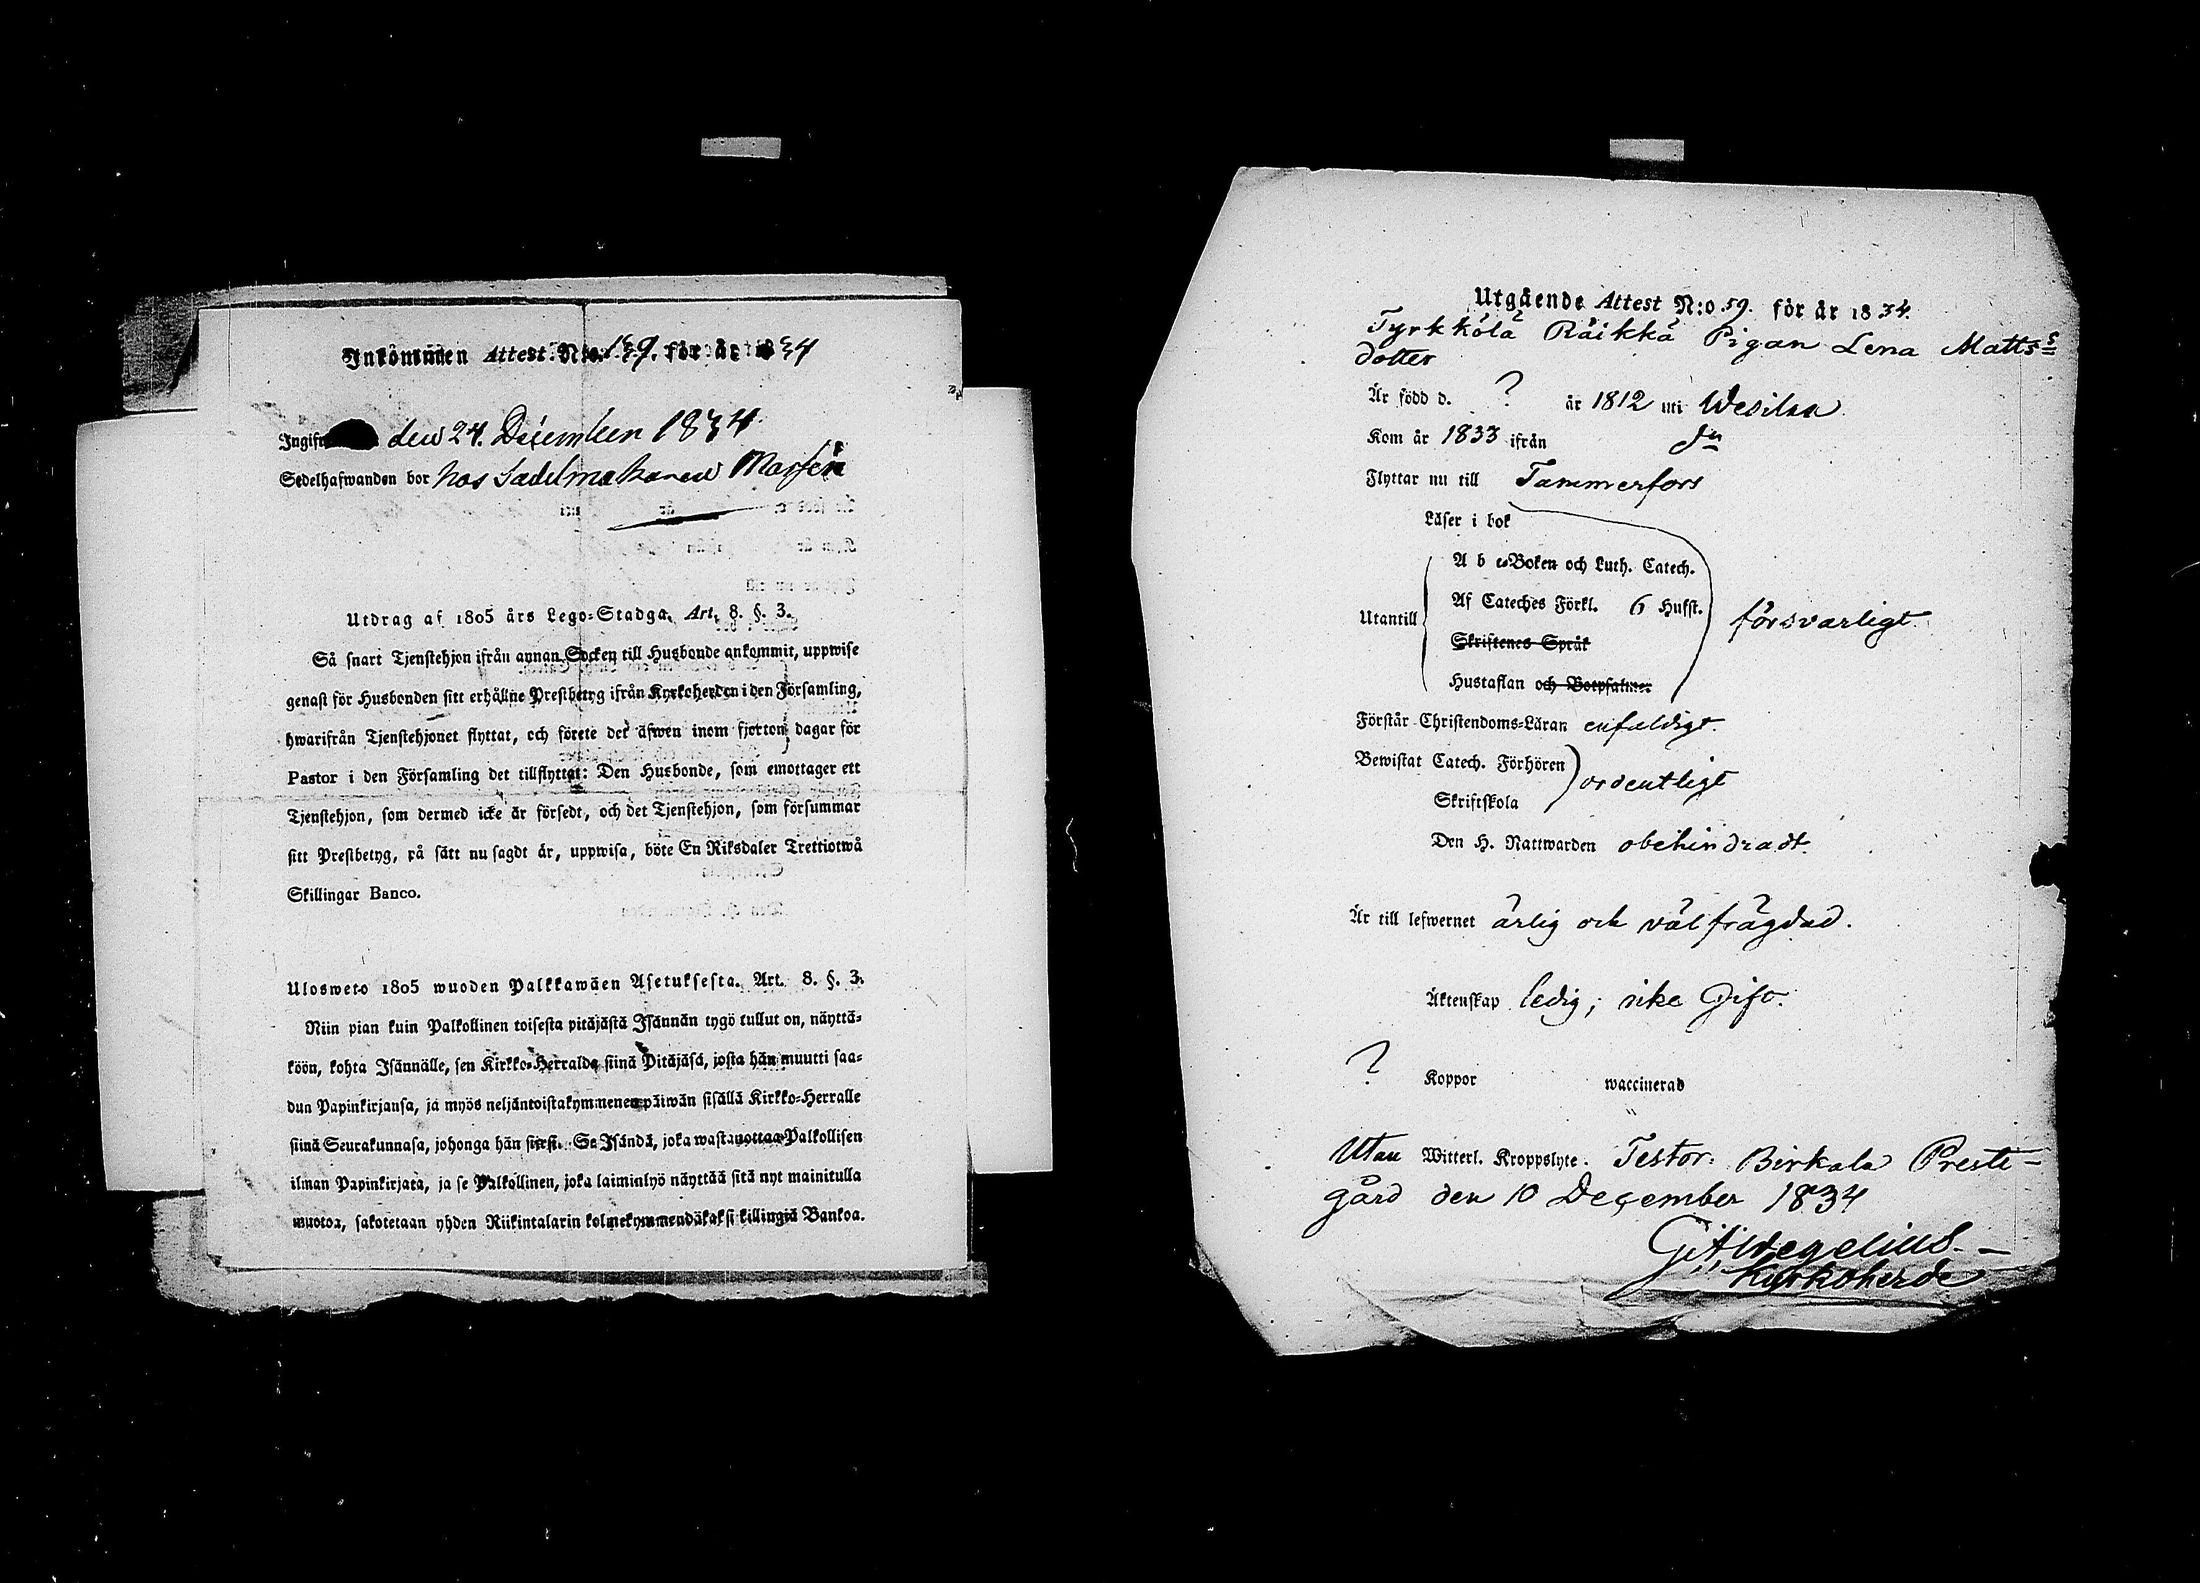 Inkommen Attest. N:o 139. för år 1834
Ingifven den 24. December 1834
Sedelhafwanden bor hos Sadelmakaren
Utdrag af 1805 års Lego-Stadga, Art. 8. §. 3.
Så snart Tjenstehjon ifrån annan Socken till Husbonde ankommit, uppwise
genast för Husbonden sitt erhållne Prestbetyg ifrån Kyrkoherden i den Församling,
hwarifrån Tjenstehjonet flyttat, och förete det äfwen inom fjorton dagar för
Pastor i den Församling det tillflyttat: Den Husbonde, som emottager ett
Tjenstehjon, som dermed icke är försedt, och det Tjenstehjon, som försummar
sitt Prestbetyg, på sätt nu sagdt är, uppwisa, böte En Riksdaler Trettiotwå
Skillingar Banco.
Ulosweto 1805 wuoden Palkkawäen Asetuksesta. Art. 8. §. 3.
Niin pian kuin Palkollinen toisesta pitäjästä Isännän tygö tullut on, näyttä-
köön, kohta Isännälle, sen Kirkko-Herralda siinä Pitäjäsä, josta hän muutti saa-
dun Papinkirjansa, ja myös neljäntoistakymmenen päiwän sisällä Kirkko-Herralle
siinä Seurakunnasa, johonga hän siirsi. Se Isändä, joka wastanottaa Palkollisen
ilman Papinkirjata, ja se Palkollinen, joka laiminlyö näyttää sitä nyt mainitulla
muotoa, sakotetaan yhden Riikintalarin kolmekymmendäkaksi killingiä Bankoa.
Utgående Attest N:o 59. för år 1834.
Tyrkkölä Räikkä Pigan Lena Matts
dotter
Är född d. ? år 1812 uti Wesilax
Kom år 1833 ifrån dn
Flyttar nu till Tammerfors
Läser i bok
A b c-Boken och Luth. Catech.
Utantill Af Cateches Förkl. 6 Hufst. försvarligt
Skriftenes Språk
Hustaflan och Botpsalmer
Förstår Christendoms-Läran enfaldigt.
Bewistat Catech. Förhören ordentligt
Skriftskola
Den H. Nattwarden obehindradt.
Är till lefwernet ärlig och välfrägdad.
Äktenskap ledig, icke Gift.
? Koppor waccinerad
Utan Witterl. Kroppslyte. Testor. Birkala Preste-
gård den 10 December 1834
G. A. Wegelius.
Kyrkoherde